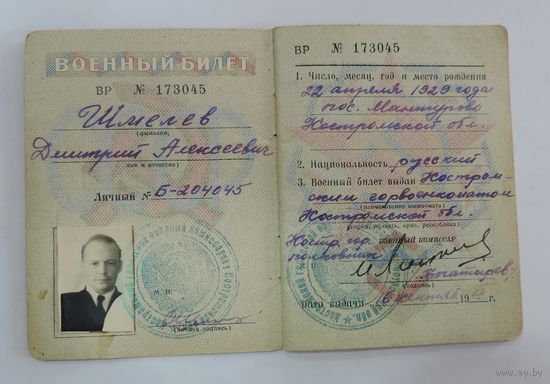 ВОЕННЫЙ БИЛЕТ
ВР № 173045
Шмелев
(фамилия,
Дмитрий Алексеевич
имя и отчество)
Личный № Б-204045
М. П.
(личная подпись)
ВР № 173045
1. Число, месяц, год и место рождения
22 апреля 1929 года
пос. Мантурово
Костромской обл.
2. Национальность русский
3. Военный билет выдан Костром-
ским горвоенкоматом
(наименование военкомата)
Костромской обл.
(город, область, край, республика)
Костр. гор. ВОЕННЫЙ КОМИССАР
полковник
(Богатырев)
(подпись)
Дата выдачи сентяб 19 г.
www.ay.by